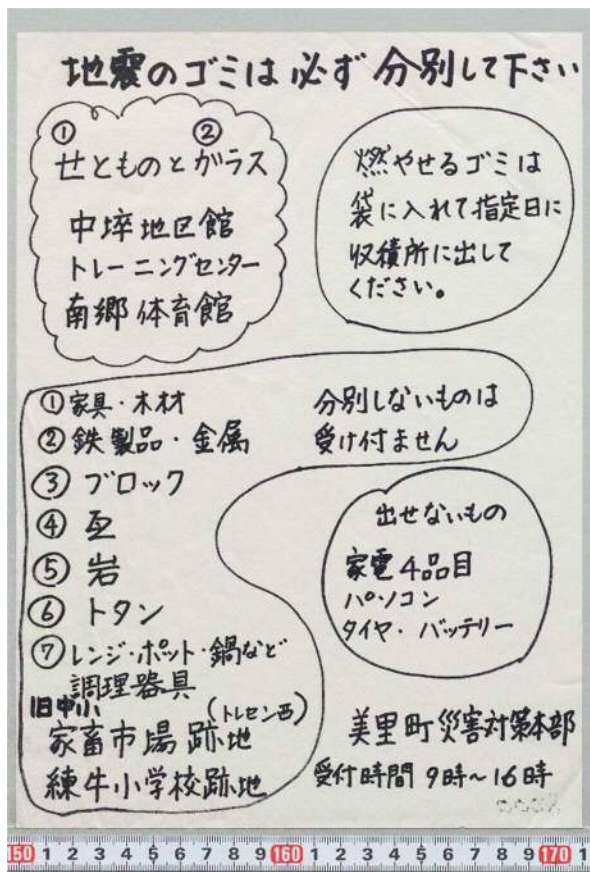 地震のゴミは必ず分別して下さい
① ②
せとものとガラス
中埣地区館
トレーニングセンター
南郷体育館
燃やせるゴミは
袋に入れて指定日に
収積所に出して
ください。
①家具・木材
②鉄製品・金属
③ブロック
④瓦
⑤岩
⑥トタン
⑦レンジ・ポット・鍋など
調理器具
旧中小
(トレセン西)
家畜市場跡地
練牛小学校跡地
分別しないものは
受け付ません
出せないもの
家電4品目
パソコン
タイヤ・バッテリー
美里町災害対策本部
受付時間 9時~16時
150 1 2 3 4 5 6 7 8 9 160 1 2 3 4 5 6 7 8 9 170 1